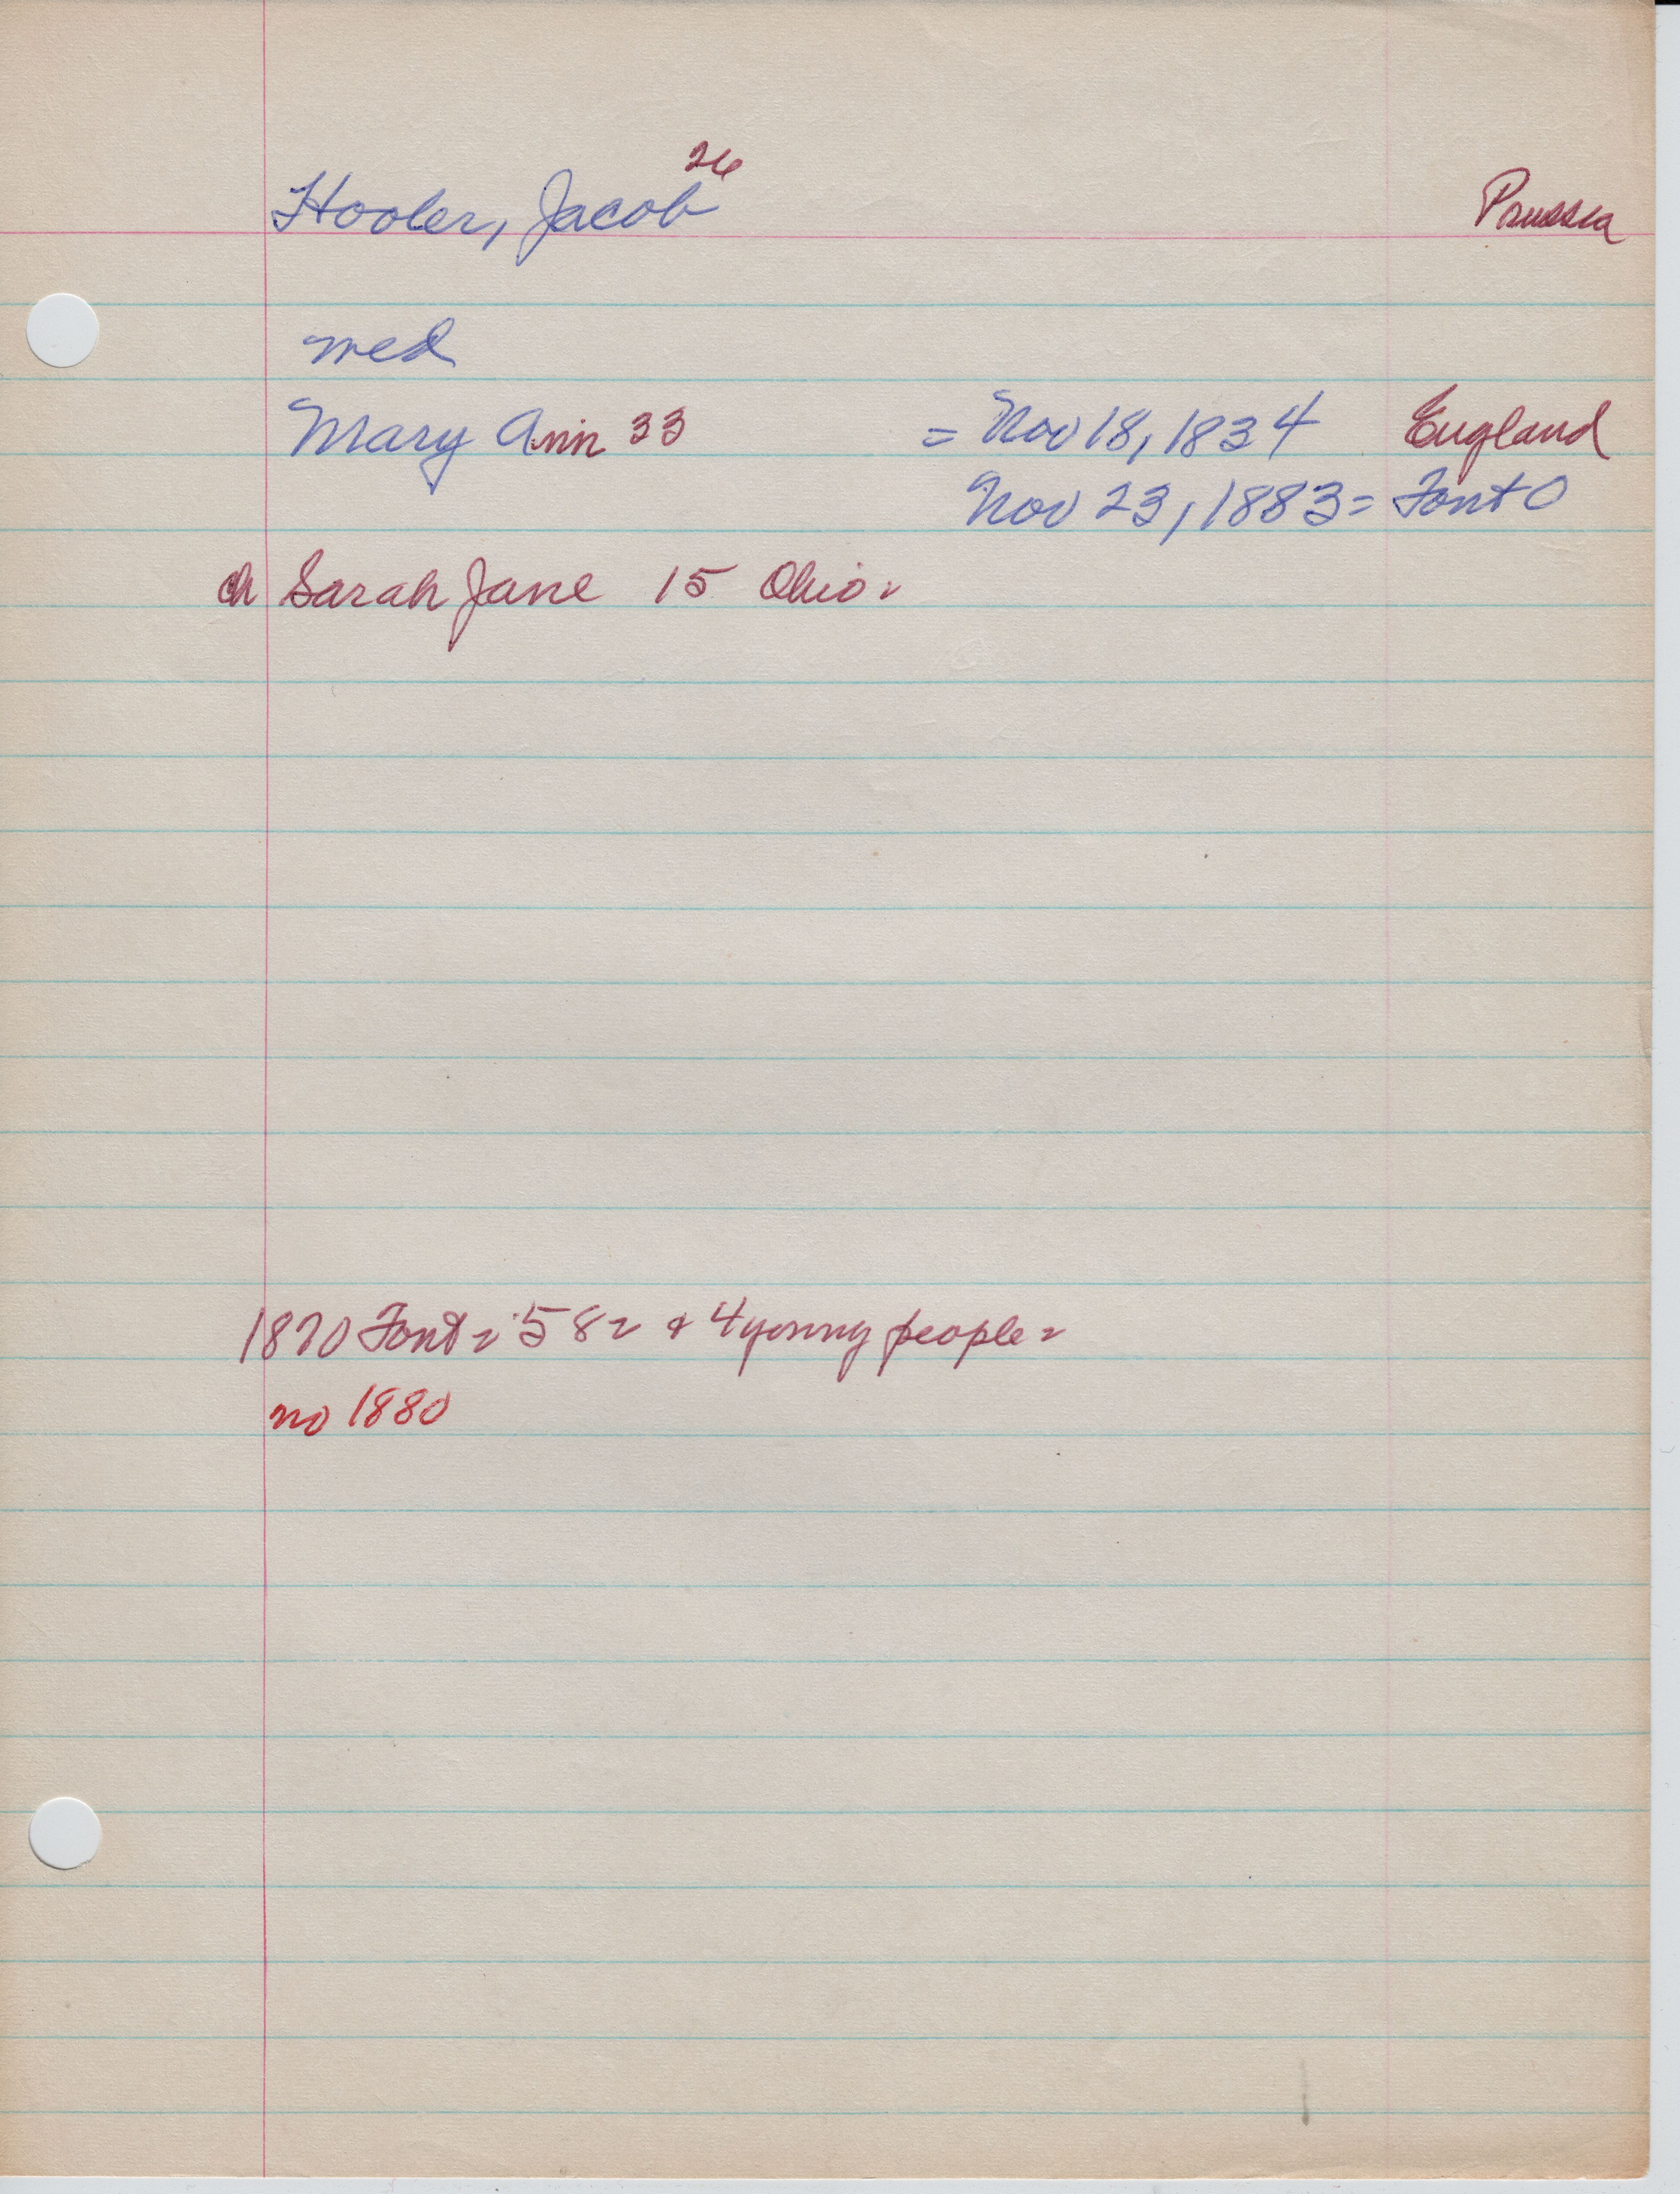 Hooler, Jacob 26 Prussia
med
Mary Ann 33 = Nov 18, 1834 England
Nov 23, 1883 = Font O
ch Sarah Jane 15 Ohio =
1870 Font = 582 & 4 young people =
no 1880